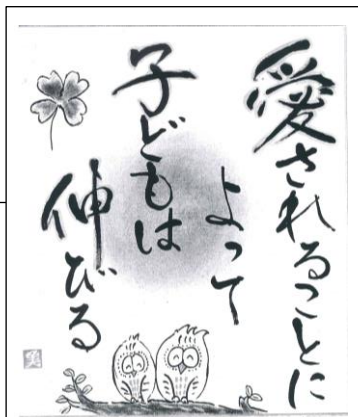 愛されることに
よって
子どもは
伸びる